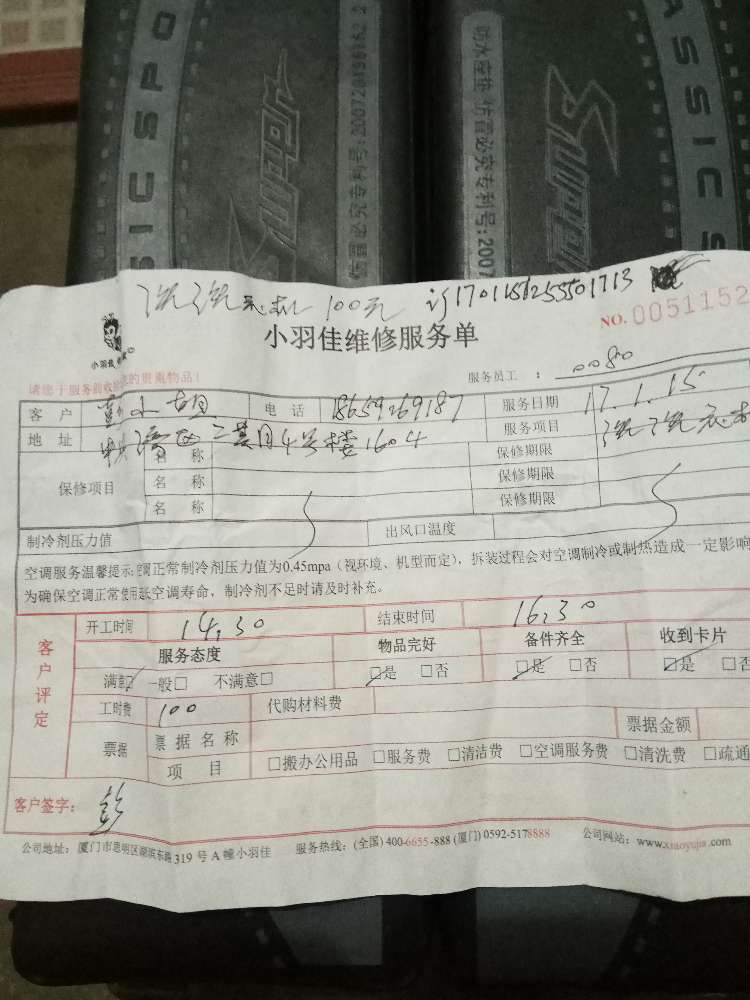 ASSIC SPO
Super
防水座垫 仿冒必究专利号:2007
ASSIC S
100元
NO. 0051152
小羽佳维修服务单
请您于服务前收拾您的贵重物品!
服务员工 : 0080
客 户 小姐 电 话 18659269187 服务日期 17.1.15
地 址 4号楼1604 服务项目
保修项目 名 称 保修期限
名 称 保修期限
名 称 保修期限
制冷剂压力值 出风口温度
空调服务温馨提示:空调正常制冷剂压力值为0.45mpa(视环境、机型而定),拆装过程会对空调制冷或制热造成一定影响
为确保空调正常使用 空调寿命,制冷剂不足时请及时补充。
客户评定 开工时间 14.30 结束时间 16.30
服务态度 物品完好 备件齐全 收到卡片
满意☑ 一般□ 不满意□ ☑是 □否 ☑是 □否 ☑是 □否
工时费 100 代购材料费
票据 票据名称 票据金额
项 目 □搬办公用品 □服务费 □清洁费 □空调服务费 □清洗费 □疏通
客户签字: 彭
公司地址: 厦门市思明区湖滨东路319号A幢小羽佳 服务热线: (全国) 400-6655-888 (厦门) 0592-5178888 公司网站: www.xiaoyujia.com